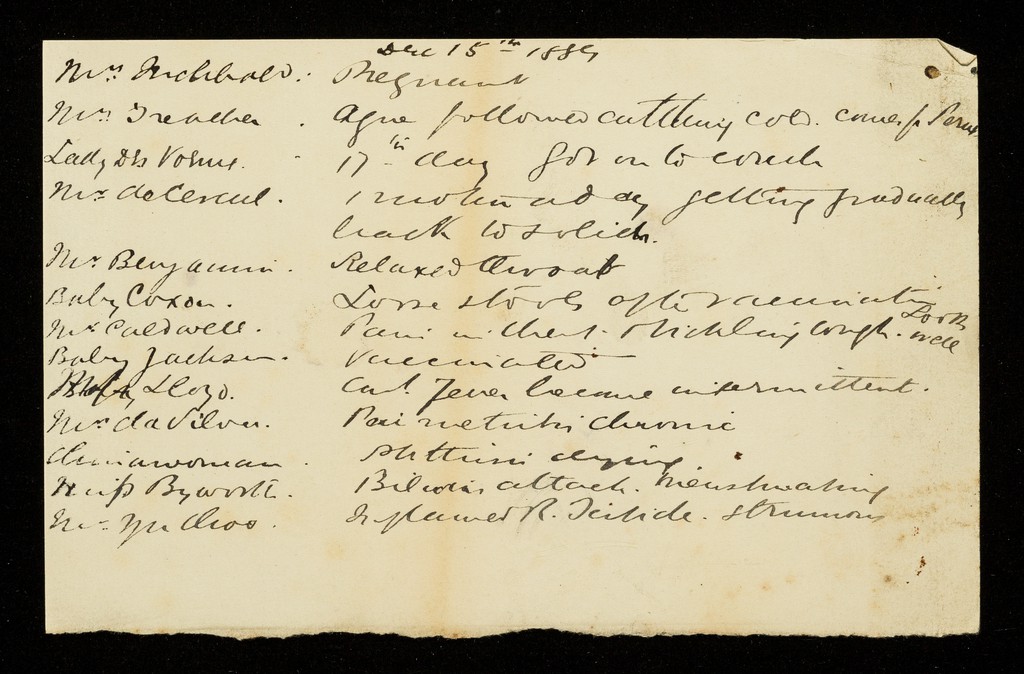 Dec 15th 1889
Mrs Inchbald. Pregnant
Mrs Treacher. Ague followed cattching cold. comes fr Perak
Lady 17th day got on to couch
Mrs getting gradually
back to solids.
Mr Benjamin. Relaxed throat
Baby Coxon. Loose stools after vaccinating Looks
Mr Caldwell. Pain in chest. cough. well
Baby Jackson. Vaccinated
Lloyd. Cat. Fever became intermittent.
Mrs da Silva. Perimetritis chronic
Chinawoman. Phthisis dying
Miss Byworth. Bilious attack. Menstruating
Inflamed R. Testicle. strumous